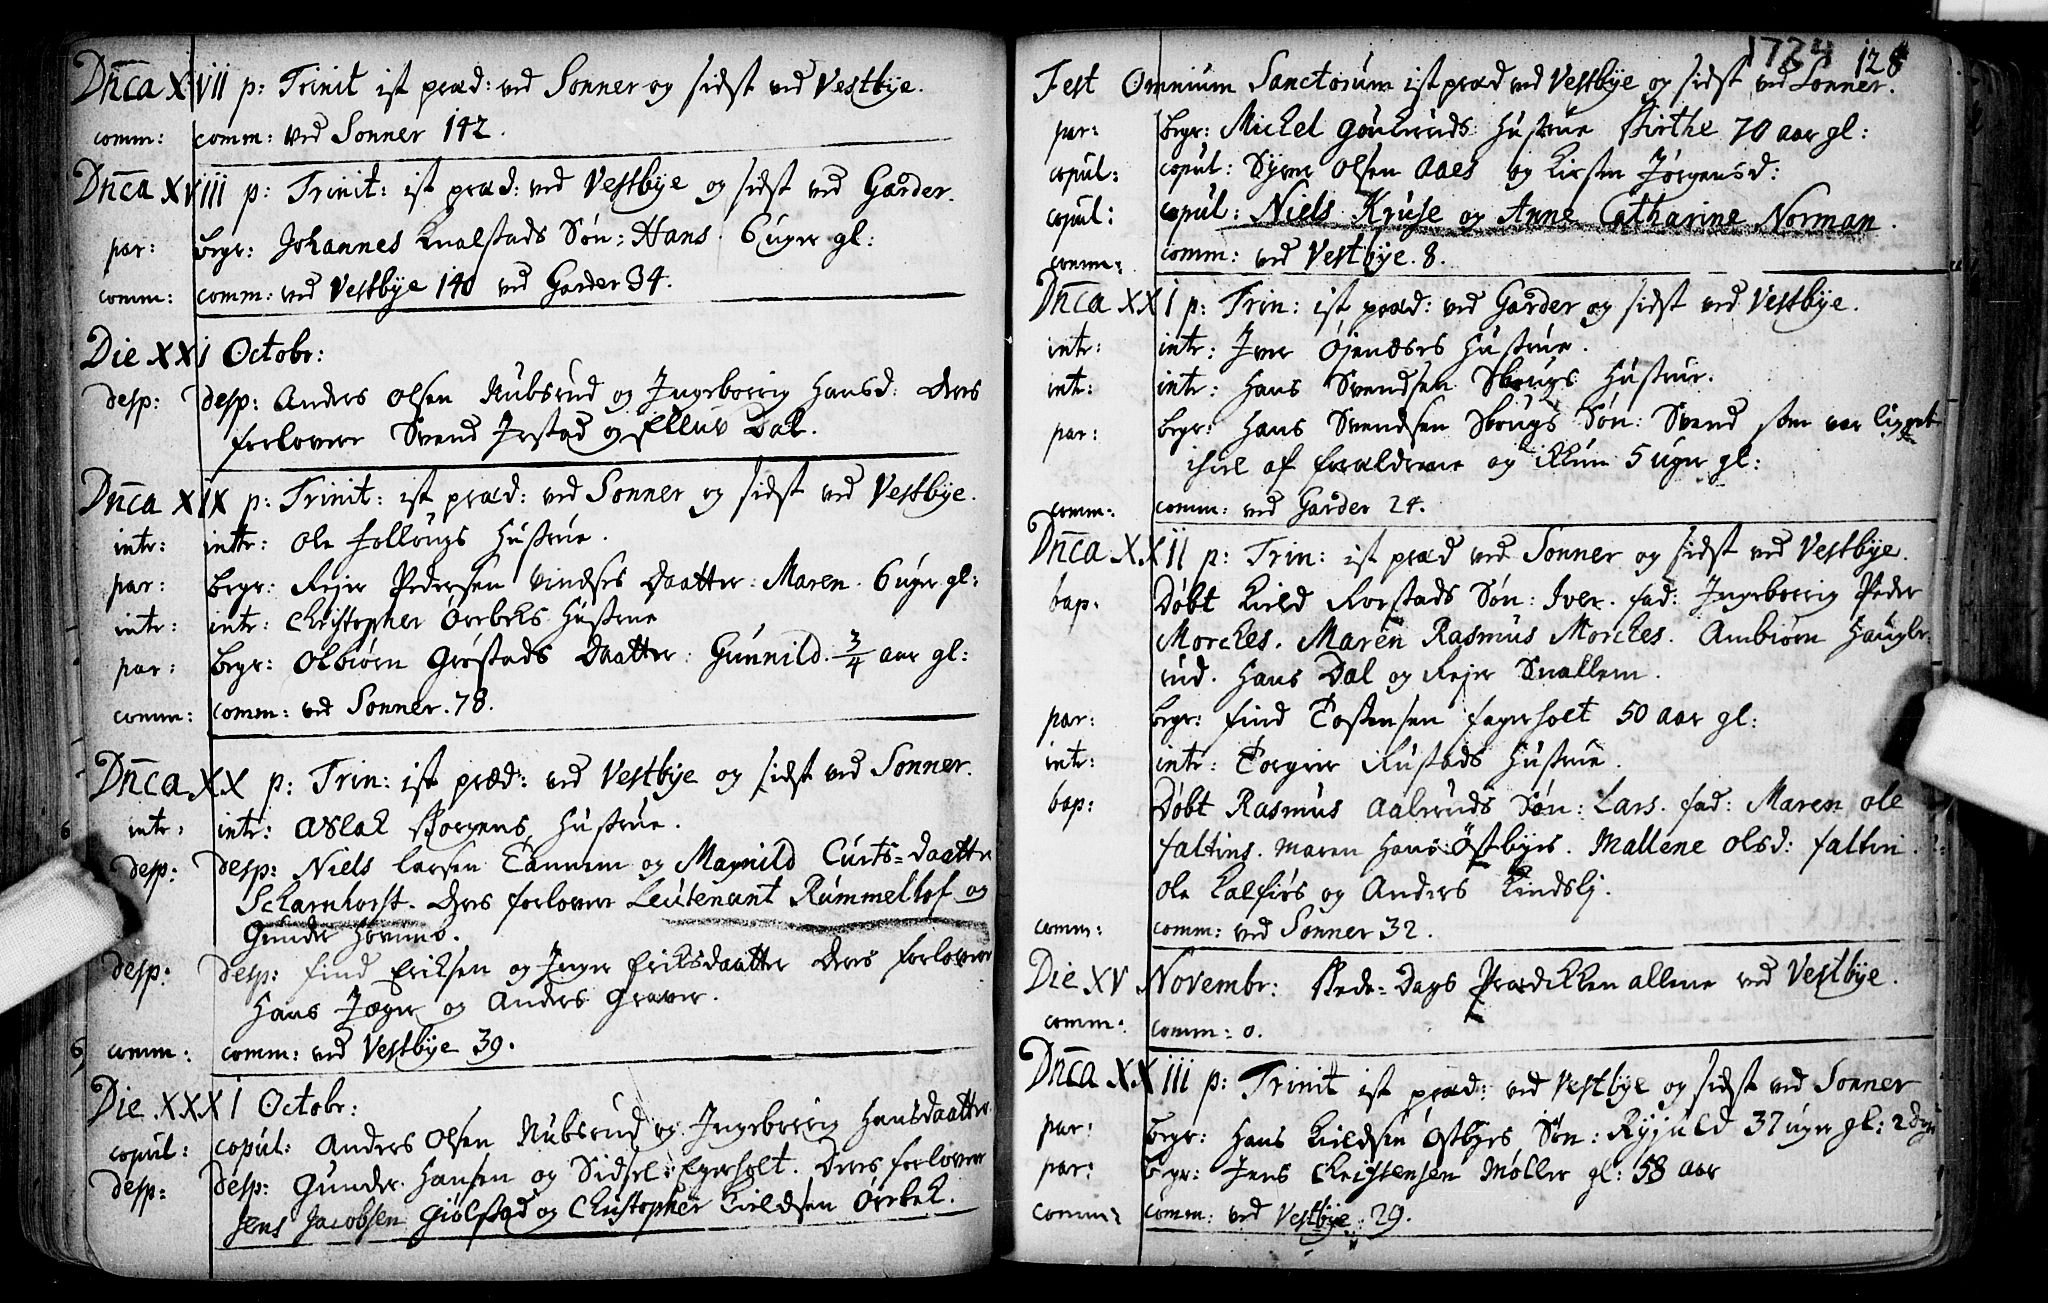 Dn̄ca XVII p: Trinit ist præd: ved Sonner og sidst ved Vestbÿe.
comm: comm: ved Sonner 142.
Dn̄ca XVIII p: Trinit: ist præd: ved Vestbÿe og sidst ved Gårder.
par: begr: Johannes Kualstads Søn: Hans. 6 uger gl:
comm: comm: ved Vestbÿe 140 ved Garder 34.
Die XXI Octobr:
desp: desp: Anders Olsen Nubsrud og Ingeborrig Hansd: Deres
forlovere Svend Irstad og Elluv Dal.
Dn̄ca XIX p: Trinit: ist præd: ved Sonner og sidst ved Vestbÿe.
intr: intr: Ole Follougs Hustrue.
par: begr: Rejer Pedersen Vindses Daatter: Maren. 6 uger gl:
intr: intr: Christopher Örebeks Hustrue
par: begr: Olbiørn Grøstads Daatter: Gunnild. 3/4 aar gl:
comm: comm: ved Sonner. 78.
Dn̄ca XX p: Trin: ist præd: ved Vestbÿe og sidst ved Sonner.
intr: intr: Aslak Borgens Hustrue.
desp: desp: Niels Larsen Tannum og Magnild Curts=daatter
Scharnhorst. Deres forlover Leutenant Rummelhof og
Gunder Hovmo.
desp: desp: Find Eriksen og Inger Eriksdaatter Deres forlover
Hans Jæger og Anders Graver.
comm: comm: ved Vestbÿe 39.
Die XXXI Octobr:
copul: copul: Anders Olsen Nubsrud og Ingeborrig Hansdaatter
desp: desp: Gunder Hansen og Sidsel Egerholt. Deres forlover
Jens Jacobsen Giølstad og Christopher Kieldsen Örebek.
1724 128
Fest Omnium Sanctorum ist præd ved Vestbÿe og sidst ved Sonner.
par: begr: Mickel Hustrue Birthe 70 aar gl:
copul: copul: Syver Olsen Aaes og Kirsten Jørgensd:
copul: copul: Niels Kruse og Anne Catharine Norman.
comm: comm: ved Vestbÿe. 8.
Dn̄ca XXI p: Trin: ist præd: ved Gårder og sidst ved Vestbÿe.
intr: intr: Iver Öjenæses Hustrue.
intr: intr: Hans Svendsen Skougs Hustrue.
par: begr: Hans Svendsen Skougs Søn: Svend som var ligget
ihiel af forældrene og ikkun 5 uger gl:
comm: comm: ved Gårder 24.
Dn̄ca XXII p: Trin: ist præd ved Sonner og sidst ved Vestbÿe.
bap: Døbt Kield Rorstads Søn: Iver. fad: Ingeborrig Peder
Morckes. Maren Rasmus Morckes. Ambiørn Haugbr:
rud. Hans Dal og Rejer Snallem.
par: begr: Find Tostensen Fagerholt 50 aar gl:
intr: intr: Torgrir Rustads Hustrue.
bap: Døbt Rasmus Aalerruds Søn: Lars. fad: Maren Ole
Faltins. Maren Hans Östbÿes. Mallene Olsd: Faltin.
Ole Kalføs og Anders Kindslj.
comm: comm: ved Sonner 32.
Die XV Novembr: Bede=Dags Prædikken allene ved Vestbÿe.
comm: comm: 0.
Dn̄ca XXIII p: Trinit ist præd: ved Vestbÿe og sidst ved Sonner
par: begr: Hans Kieldsen Östbyes Søn: 37 uger gl: 2 Dge
par: begr: Jens Christensen Møller gl: 58 aar
comm: comm: ved Vestbÿe. 29.